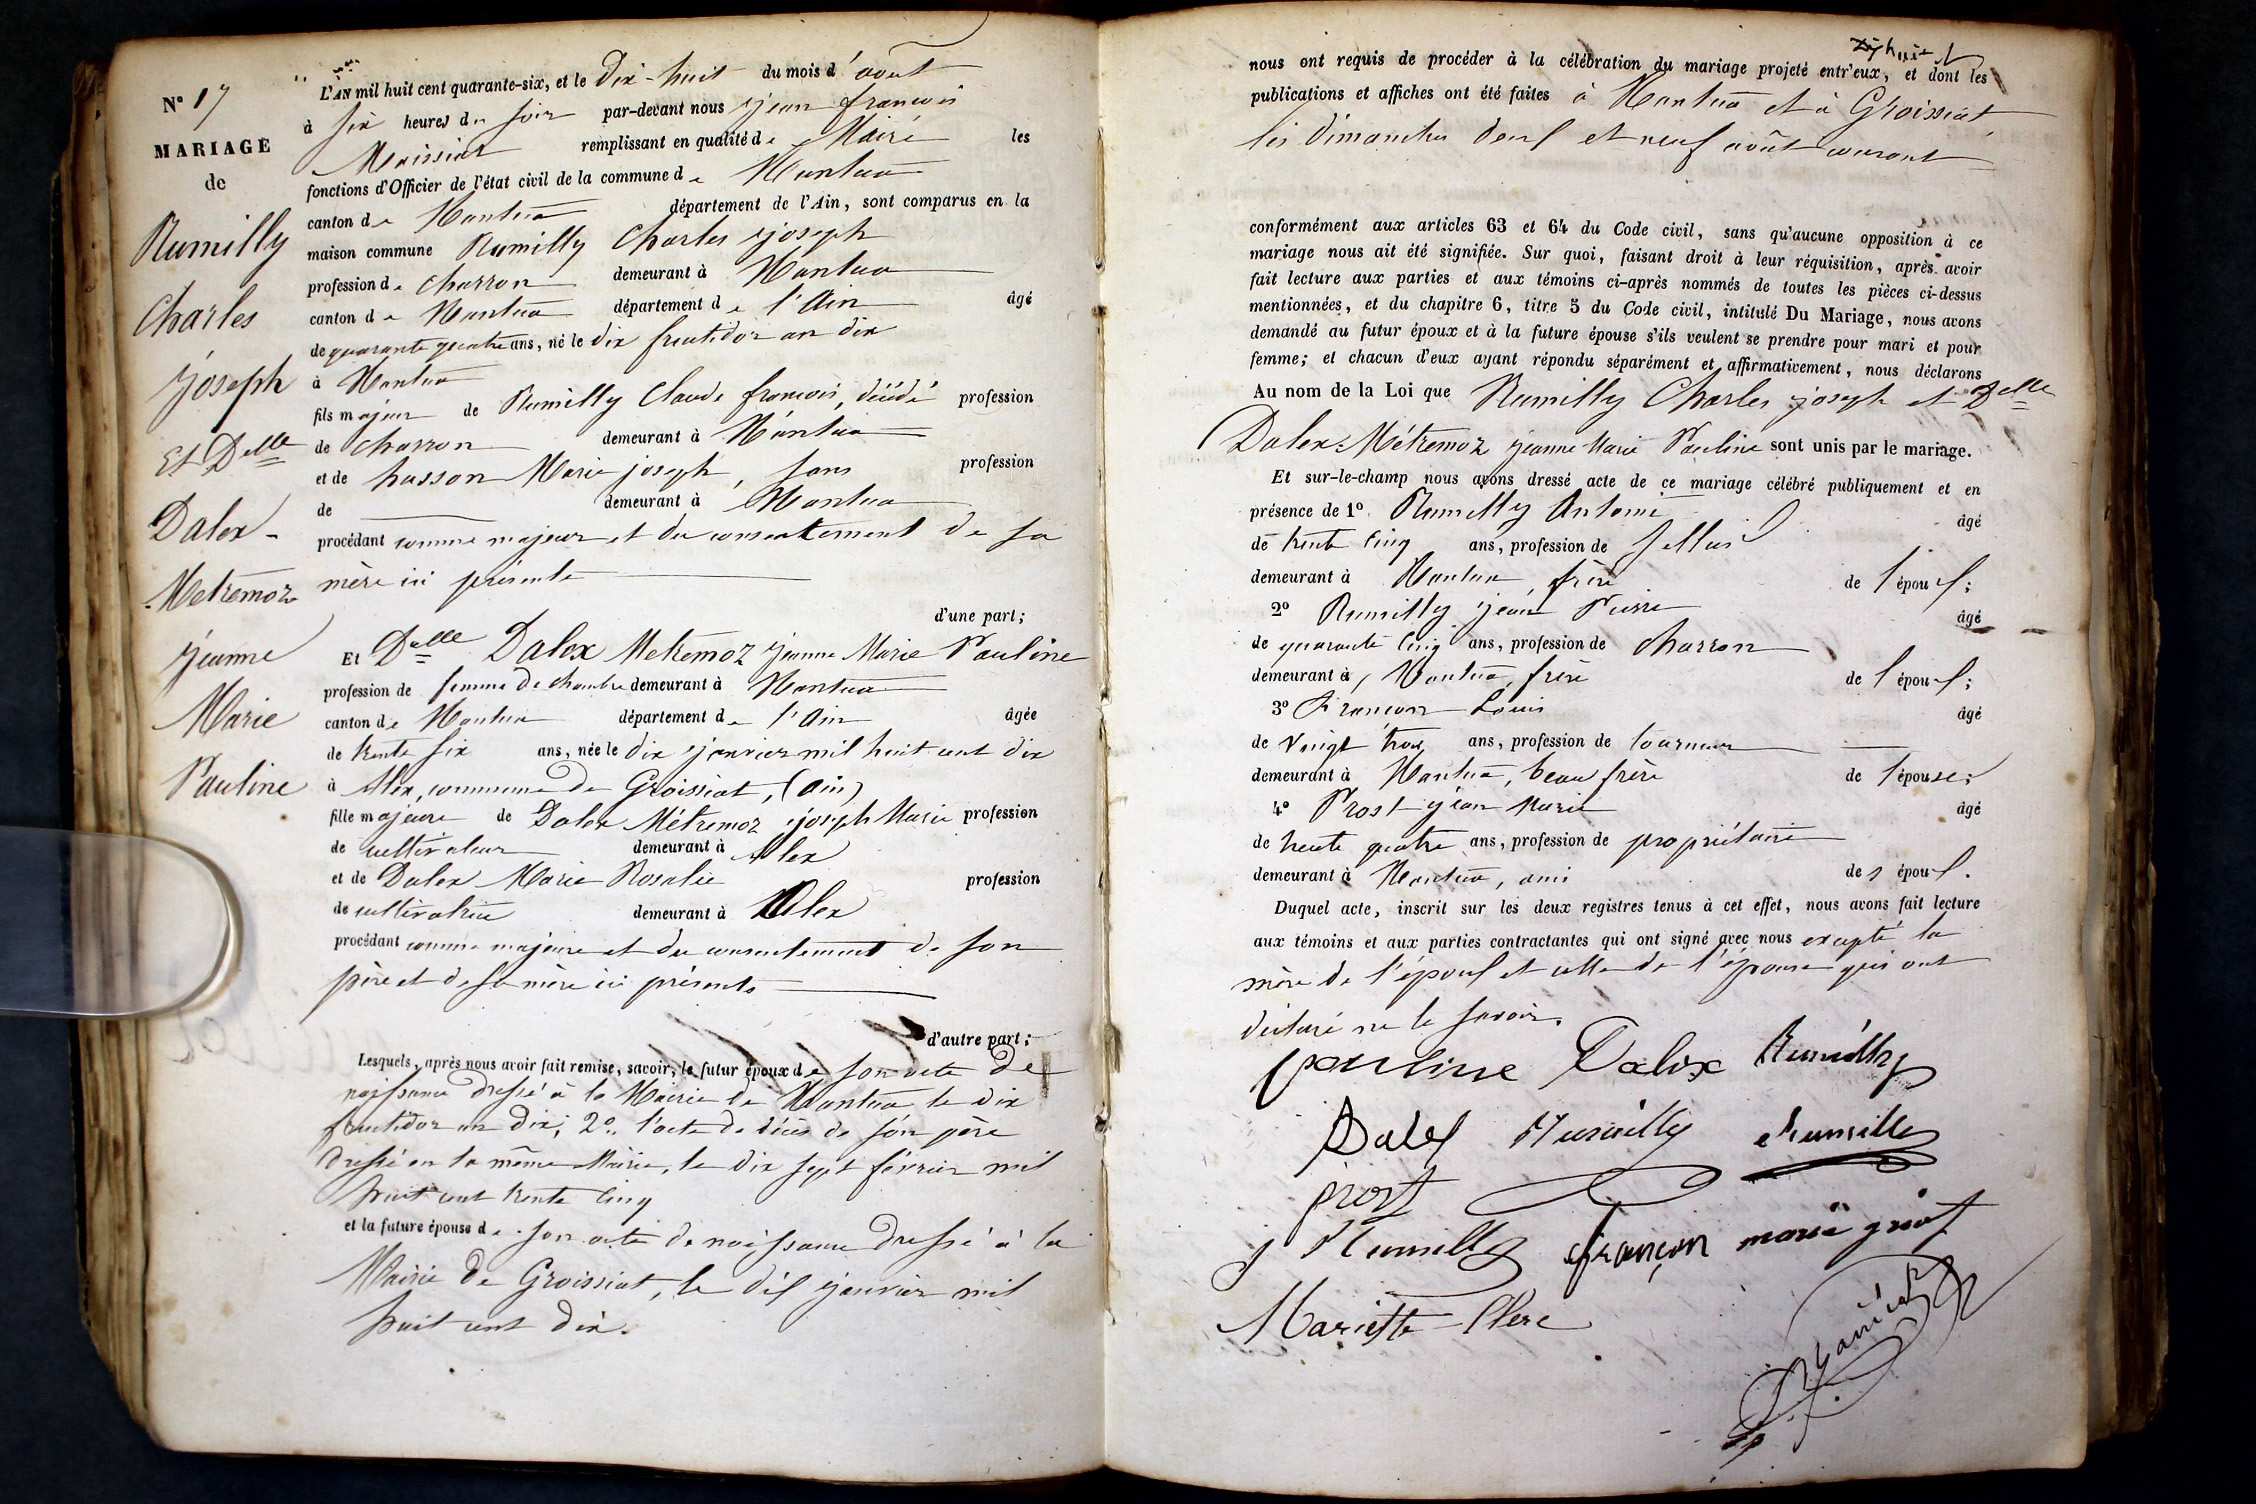 N.° 17
MARIAGE
de
Rumilly
Charles
joseph
Et Delle
Dalex-
Metremoz
jeanne
Marie
Pauline
L'AN mil huit cent quarante-six, et le Dix-huit du mois d'août
à six heures du soir par-devant nous jean françois
Maissiat remplissant en qualité de Maire les
fonctions d'Officier de l'état civil de la commune de Nantua
canton de Nantua département de l'Ain, sont comparus en la
maison commune Rumilly Charles joseph
profession de charron demeurant à Nantua
canton de Nantua département de l'Ain âgé
de quarante quatre ans, né le dix fructidor an dix
à Nantua
fils majeur de Rumilly Claude françois, décédé profession
de charron demeurant à Nantua
et de husson Marie joseph, sans profession
de demeurant à Nantua
procédant comme majeur et du consentement de sa
mère ici présente
d'une part;
Et Delle Dalex Metremoz jeanne Marie Pauline
profession de femme de chambre demeurant à Nantua
canton de Nantua département de l'Ain âgée
de trente six ans, née le dix janvier mil huit cent dix
à Alex, commune de Groissiat, (Ain)
fille majeure de Dalex Métremoz joseph Marie profession
de cultivateur demeurant à Alex
et de Dalex Marie Rosalie profession
de cultivatrice demeurant à Alex
procédant comme majeure et du consentement de son
père et de sa mère ici présents
d'autre part;
Lesquels, après nous avoir fait remise, savoir, le futur époux de son acte de
naissance dressé à la Mairie de Nantua le dix
fructidor an dix; 2°. l'acte de décès de son père
dressé en la même Mairie, le dix sept février mil
huit cent trente cinq
et la future épouse de son acte de naissance dressé à la
Mairie de Groissiat, le dix janvier mil
huit cent dix.
nous ont requis de procéder à la célébration du mariage projeté entr'eux, et dont les
publications et affiches ont été faites à Nantua et à Groissiat
les dimanches deux et neuf août courant
conformément aux articles 63 et 64 du Code civil, sans qu'aucune opposition à ce
mariage nous ait été signifiée. Sur quoi, faisant droit à leur réquisition, après avoir
fait lecture aux parties et aux témoins ci-après nommés de toutes les pièces ci-dessus
mentionnées, et du chapitre 6, titre 5 du Code civil, intitulé Du Mariage, nous avons
demandé au futur époux et à la future épouse s'ils veulent se prendre pour mari et pour
femme; et chacun d'eux ayant répondu séparément et affirmativement, nous déclarons
Au nom de la Loi que Rumilly Charles joseph et Delle
Dalex-Métremoz jeanne Marie Pauline sont unis par le mariage.
Et sur-le-champ nous avons dressé acte de ce mariage célébré publiquement et en
présence de 1° Rumilly Antoine âgé
de trente cinq ans, profession de sellier
demeurant à Nantua, frère de l'époux;
2° Rumilly jean Pierre âgé
de quarante cinq ans, profession de charron
demeurant à Nantua, frère de l'époux;
3° françon Louis âgé
de Vingt trois ans, profession de tourneur
demeurant à Nantua, beau frère de l'épouse;
4° Prost jean Marie âgé
de trente quatre ans, profession de propriétaire
demeurant à Nantua, ami des époux.
Duquel acte, inscrit sur les deux registres tenus à cet effet, nous avons fait lecture
aux témoins et aux parties contractantes qui ont signé avec nous excepté la
mère de l'époux et celle de l'épouse qui ont
déclaré ne le savoir.
pauline Dalex Rumilly
Dalex Rumilly Rumilly
prost
j Rumilly françon marie
Mariette Clerc